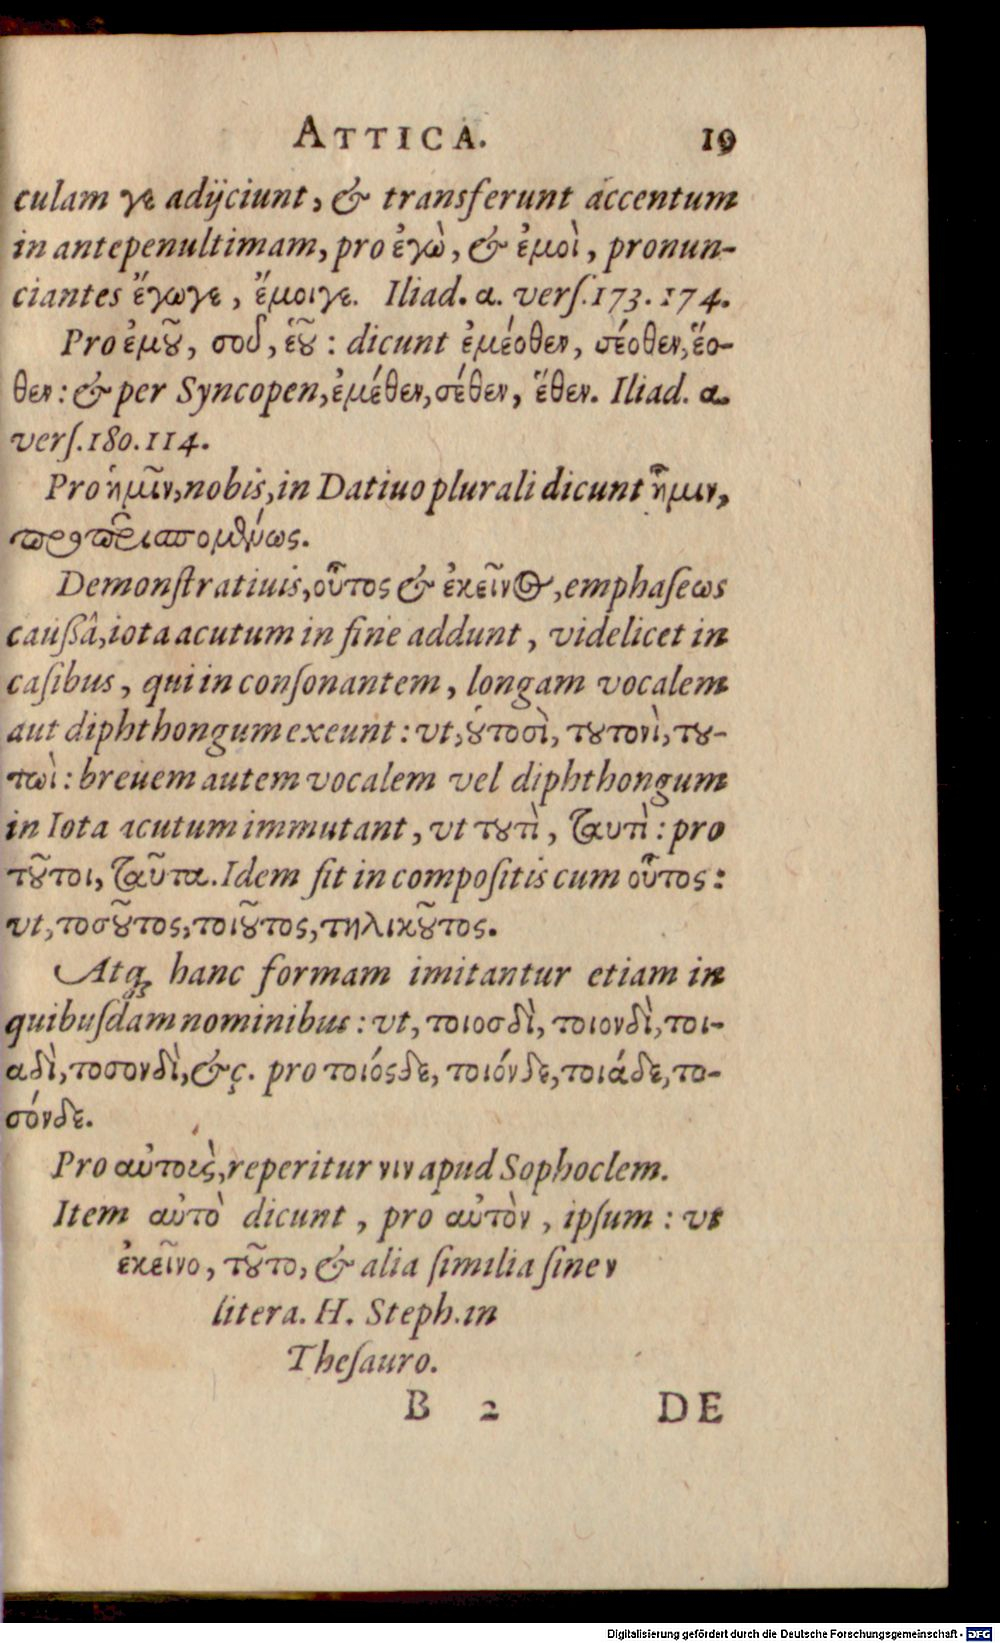 ATTICA. 19
culam γε adijciunt, & transferunt accentum
in antepenultimam, pro ἐγὼ, & ἐμοὶ, pronun-
ciantes ἔγωγε, ἔμοιγε. Iliad. α. verſ.173.174.
Pro ἐμοῦ, σοῦ, ἑοῦ : dicunt ἐμέοθεν, σέοθεν, ἕο-
θεν : & per Syncopen, ἐμέθεν, σέθεν, ἕθεν. Iliad. α.
verſ.180.114.
Pro ἡμῖν, nobis, in Datiuo plurali dicunt ἧμιν,
Demonſtratiuis, οὗτος & ἐκεῖνος, emphaſεως
cauſſâ, iota acutum in fine addunt, videlicet in
caſibus, qui in conſonantem, longam vocalem
aut diphthongum exeunt : vt, οὑτοσὶ, τουτονὶ, του-
τωὶ : breuem autem vocalem vel diphthongum
in Iota acutum immutant, vt τουτὶ, ταυτὶ : pro
τοῦτοι, ταῦτα. Idem fit in compoſitis cum οὗτος :
vt, τοσοῦτος, τοιοῦτος, τηλικοῦτος.
Atq; hanc formam imitantur etiam in
quibuſdam nominibus : vt, τοιοσδὶ, τοιονδὶ, τοι-
αδὶ, τοσονδὶ, &ç. pro τοιόσδε, τοιόνδε, τοιάδε, το-
σόνδε.
Pro αὐτοὶς, reperitur νιν apud Sophoclem.
Item αὐτὸ dicunt, pro αὐτὸν, ipſum : vt
ἐκεῖνο, τοῦτο, & alia ſimilia ſine ν
litera. H. Steph. in
Theſauro.
B 2 DE
Digitalisierung gefördert durch die Deutsche Forschungsgemeinschaft - DFG